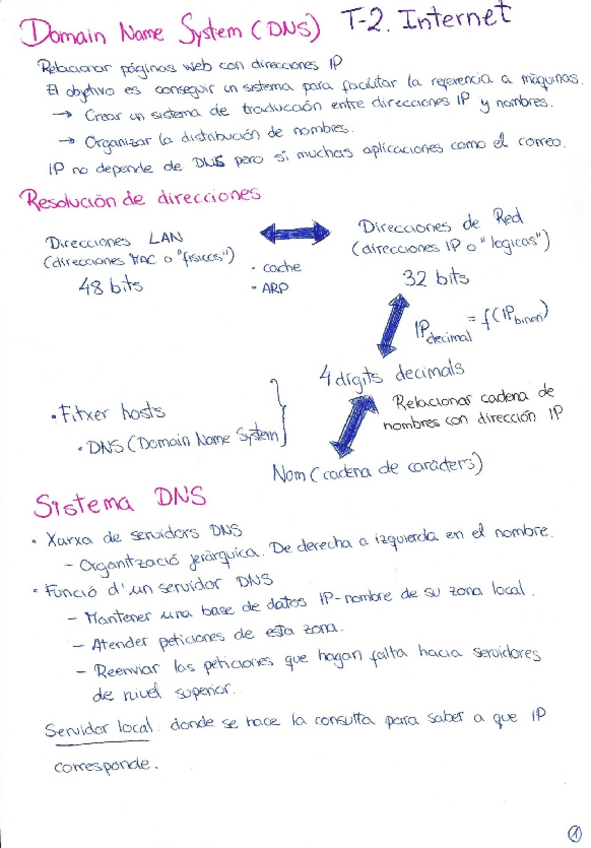 Domain Name System (DNS) T-2. Internet
Relacionar páginas web con direcciones IP
El objetivo es conseguir un sistema para facilitar la referencia a máquinas.
→ Crear un sistema de traducción entre direcciones IP y nombres.
→ Organizar la distribución de nombres.
IP no depende de DNS pero si muchas aplicaciones como el correo.
Resolución de direcciones
Direcciones LAN
(direcciones MAC o "fisicas")
48 bits
• cache
• ARP
Direcciones de Red
(direcciones IP o "logicas")
32 bits
IP decimal = f(IP binari)
4 dígits decimals
Relacionar cadena de
nombres con dirección IP
• Fitxer hosts
• DNS (Domain Name System)
Nom (cadena de caràcters)
Sistema DNS
• Xarxa de servidors DNS
– Organització jeràrquica. De derecha a izquierda en el nombre.
• Funció d'un servidor DNS
– Mantener una base de datos IP-nombre de su zona local.
– Atender peticiones de esta zona.
– Reenviar las peticiones que hagan falta hacia servidores
de nivel superior.
Servidor local: donde se hace la consulta para saber a que IP
corresponde.
1